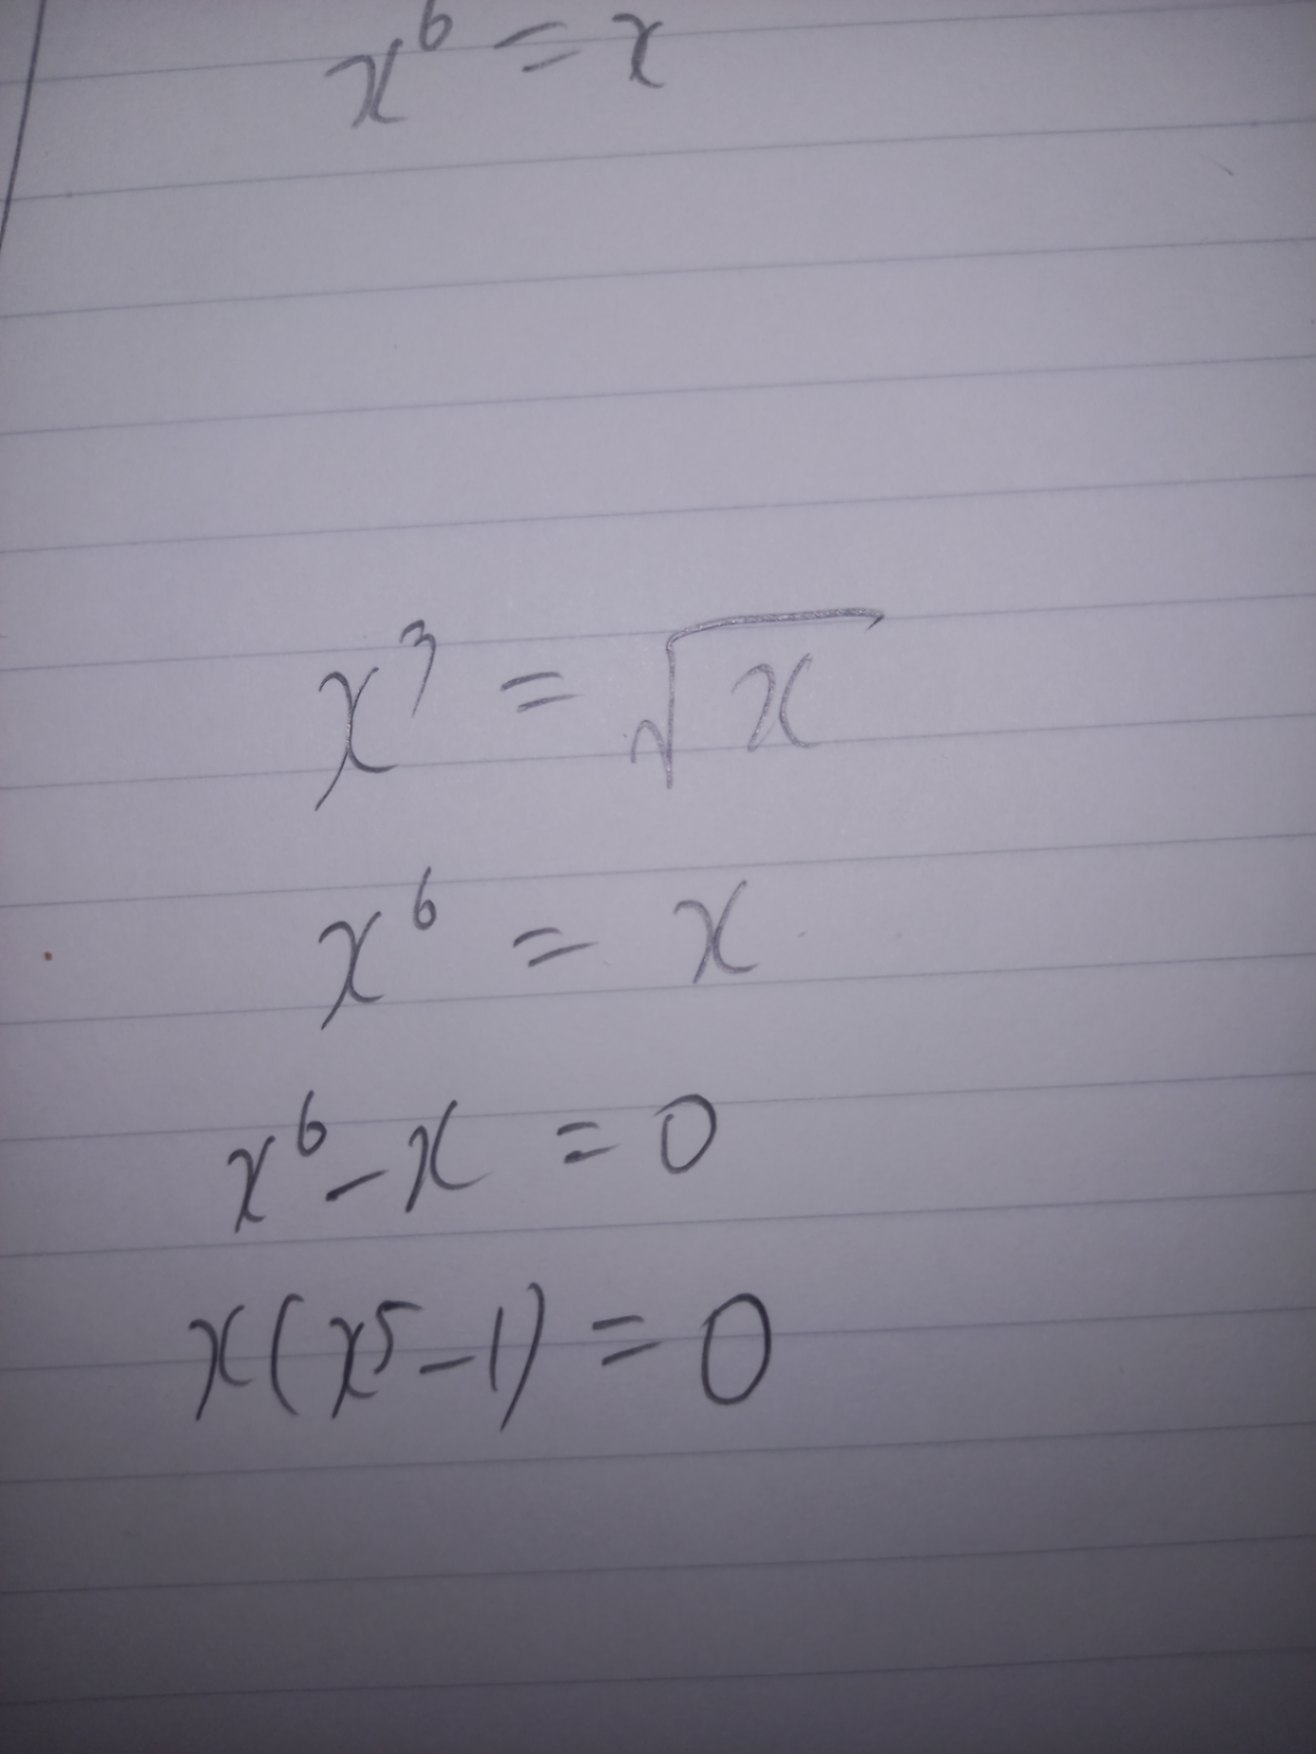 x⁶ = x
x³ = √x
x⁶ = x
x⁶ - x = 0
x(x⁵ - 1) = 0